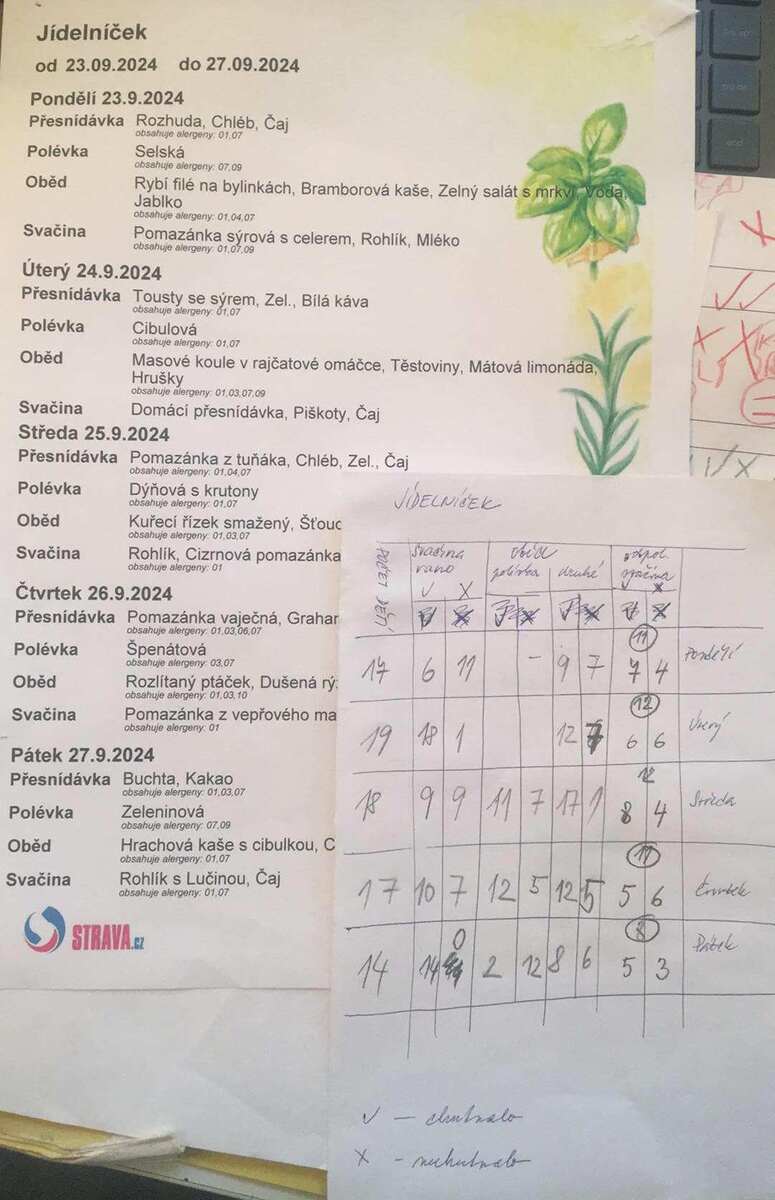 Jídelníček
od 23.09.2024 do 27.09.2024
Pondělí 23.9.2024
Přesnídávka Rozhuda, Chléb, Čaj
obsahuje alergeny: 01,07
Polévka Selská
obsahuje alergeny: 07,09
Oběd Rybí filé na bylinkách, Bramborová kaše, Zelný salát s mrkví, Voda,
Jablko
obsahuje alergeny: 01,04,07
Svačina Pomazánka sýrová s celerem, Rohlík, Mléko
obsahuje alergeny: 01,07,09
Úterý 24.9.2024
Přesnídávka Tousty se sýrem, Zel., Bílá káva
obsahuje alergeny: 01,07
Polévka Cibulová
obsahuje alergeny: 01,07
Oběd Masové koule v rajčatové omáčce, Těstoviny, Mátová limonáda,
Hrušky
obsahuje alergeny: 01,03,07,09
Svačina Domácí přesnídávka, Piškoty, Čaj
Středa 25.9.2024
Přesnídávka Pomazánka z tuňáka, Chléb, Zel., Čaj
obsahuje alergeny: 01,04,07
Polévka Dýňová s krutony
obsahuje alergeny: 01,07
Oběd Kuřecí řízek smažený, Šťouc
obsahuje alergeny: 01,03,07
Svačina Rohlík, Cizrnová pomazánka
obsahuje alergeny: 01
Čtvrtek 26.9.2024
Přesnídávka Pomazánka vaječná, Graham
obsahuje alergeny: 01,03,06,07
Polévka Špenátová
obsahuje alergeny: 03,07
Oběd Rozlítaný ptáček, Dušená rý
obsahuje alergeny: 01,03,10
Svačina Pomazánka z vepřového ma
obsahuje alergeny: 01
Pátek 27.9.2024
Přesnídávka Buchta, Kakao
obsahuje alergeny: 01,03,07
Polévka Zeleninová
obsahuje alergeny: 07,09
Oběd Hrachová kaše s cibulkou, C
obsahuje alergeny: 01,07
Svačina Rohlík s Lučinou, Čaj
obsahuje alergeny: 01,07
STRAVA.cz
JÍDELNÍČEK
POČET DĚTÍ
svačina ráno
oběd
polívka druhé
odpol. svačina
✓ x
11
17 6 11 – 9 7 7 4 Pondělí
12
19 18 1 12 7 6 6 Úterý
12
18 9 9 11 7 17 1 8 4 Středa
11
17 10 7 12 5 12 5 5 6 Čtvrtek
8
14 14 0 2 12 8 6 5 3 Pátek
✓ – chutnalo
x – nechutnalo